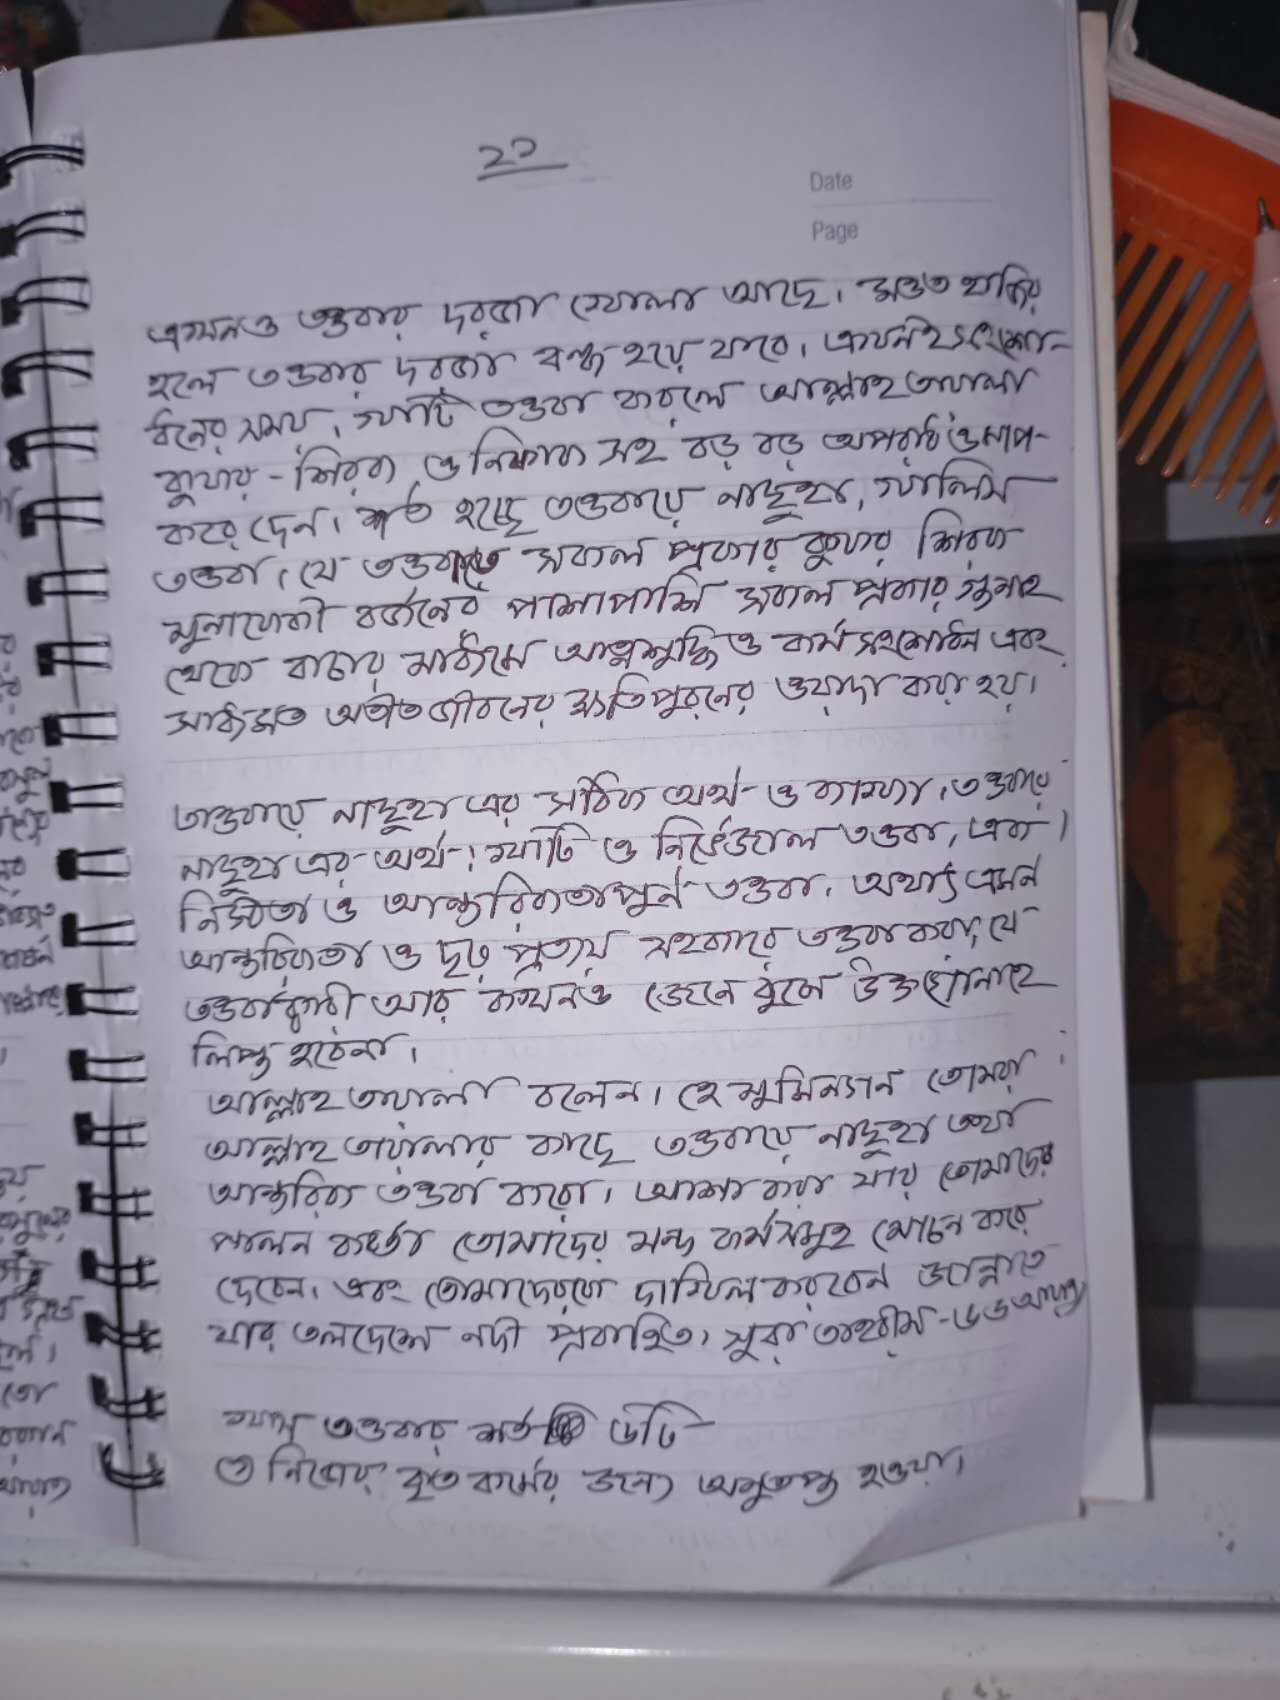 ২১
Date
Page
এখনও তওবার দরজা খোলা আছে। মউত হাজির
হলে তওবার দরজা বন্ধ হয়ে যাবে। এখনই সংশো-
ধনের সময়। খাটি তওবা করলে আল্লাহ তায়ালা
কুফার - শিরক ও নিফাক সহ বড় বড় অপরাধ ও মাপ-
করে দেন। শর্ত হচ্ছে তওবায়ে নাছুহা, খালিস
তওবা। যে তওবাতে সকল প্রকার কুফর শিরক
মুনাফেকী বর্জনের পাশাপাশি সকল প্রকার গুনাহ
থেকে বাচার মাধ্যমে আত্মশুদ্ধি ও কর্ম সংশোধন এবং
সাধ্যমত অতীত জীবনের ক্ষতিপুরনের ওয়াদা করা হয়।
তাওবায়ে নাছুহা এর সঠিক অর্থ ও ব্যাখ্যা। তওবায়ে
নাছুহা এর অর্থ : খাটি ও নির্ভেজাল তওবা, এক।
নিষ্ঠতা ও আন্তরিকতাপুর্ন তওবা। অথাৎ এমন
আন্তরিকতা ও দৃঢ় প্রত্যয় সহকারে তওবা করা, যে
তওবাকারী আর কখনও জেনে বুঝে উক্ত গোনাহে
লিপ্ত হবেনা।
আল্লাহ তায়ালা বলেন। হে মুমিনগন তোমরা
আল্লাহ তায়ালার কাছে তওবায়ে নাছুহা তথা
আন্তরিক তওবা করো। আশা করা যায় তোমাদের
পালন কর্ত্তা তোমাদের মন্দ কর্মসমুহ মোচন করে
দেবেন। এবং তোমাদেরকে দাখিল করবেন জান্নাতে
যার তলদেশে নদী প্রবাহিত। সুরা তাহরীম - ৬৬ আয়াত
খাস তওবার শর্ত ৬টি
ও নিজের কৃত কর্মের জন্য অনুতপ্ত হওয়া।